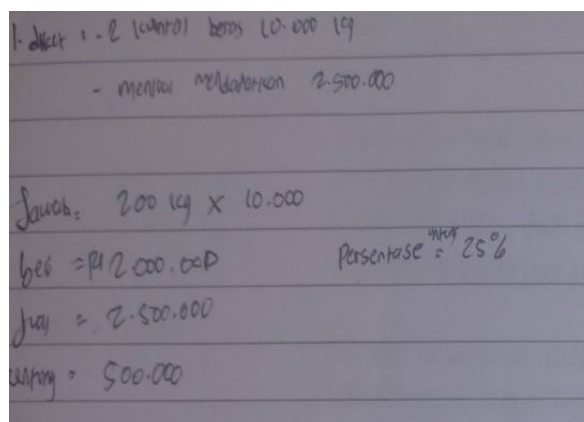 1. diket : - 2 kuintal beras 10.000 kg
- menjual mendapatkan 2.500.000
Jawab = 200 kg x 10.000
beli = Rp 2.000.000
Persentase untung = 25%
jual = 2.500.000
untung = 500.000